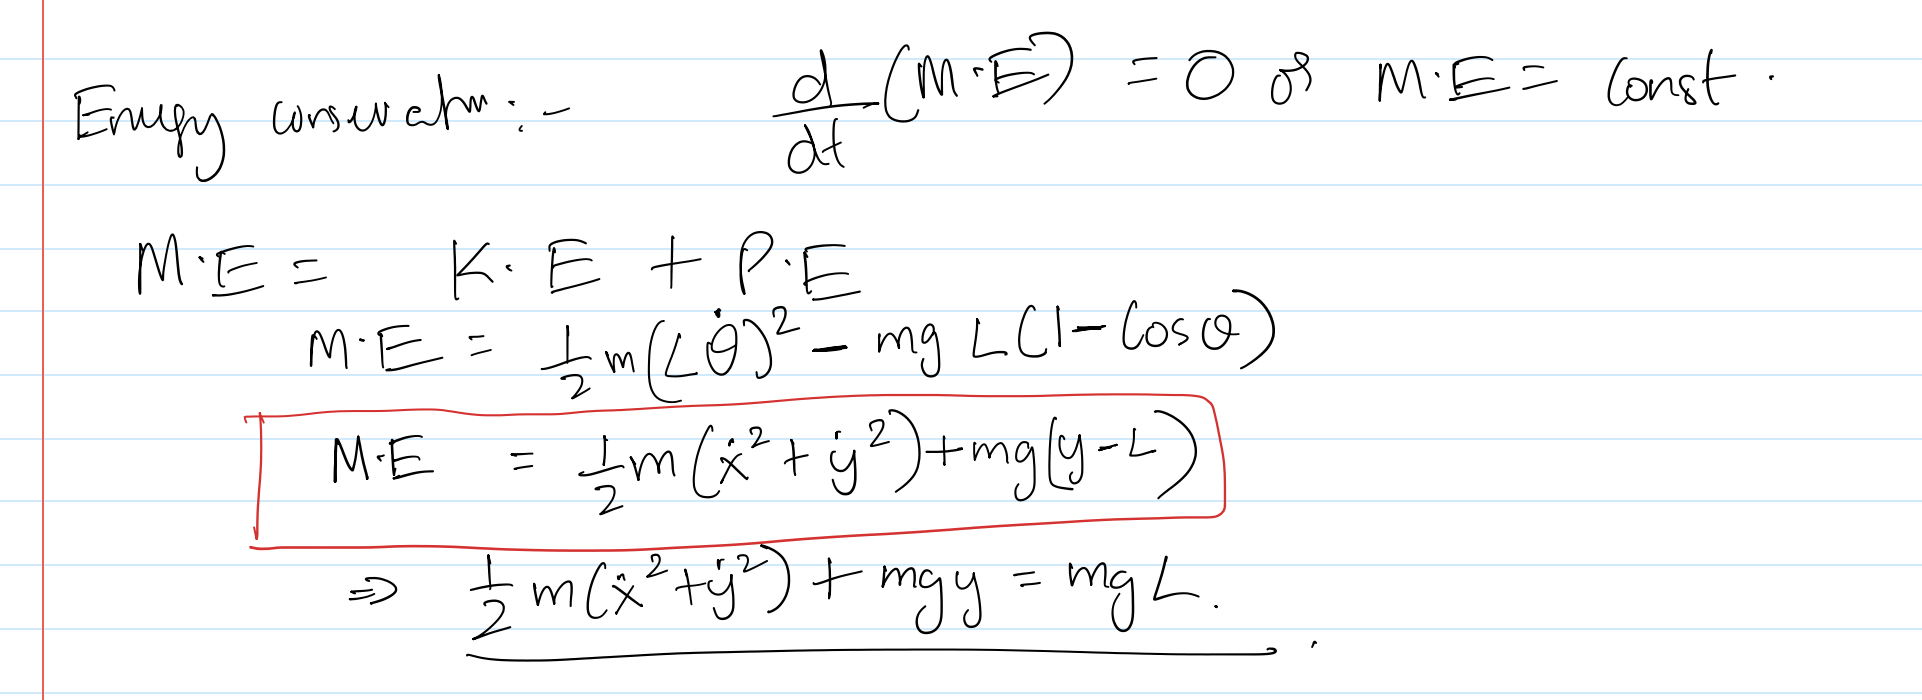 Energy conservation:- d/dt (M.E) = 0 or M.E = Const.
M.E = K.E + P.E
M.E = 1/2 m(Lθ̇)² - mg L(1-Cosθ)
M.E = 1/2 m(ẋ² + ẏ²) + mg(y-L)
⇒ 1/2 m(ẋ² + ẏ²) + mgy = mgL.